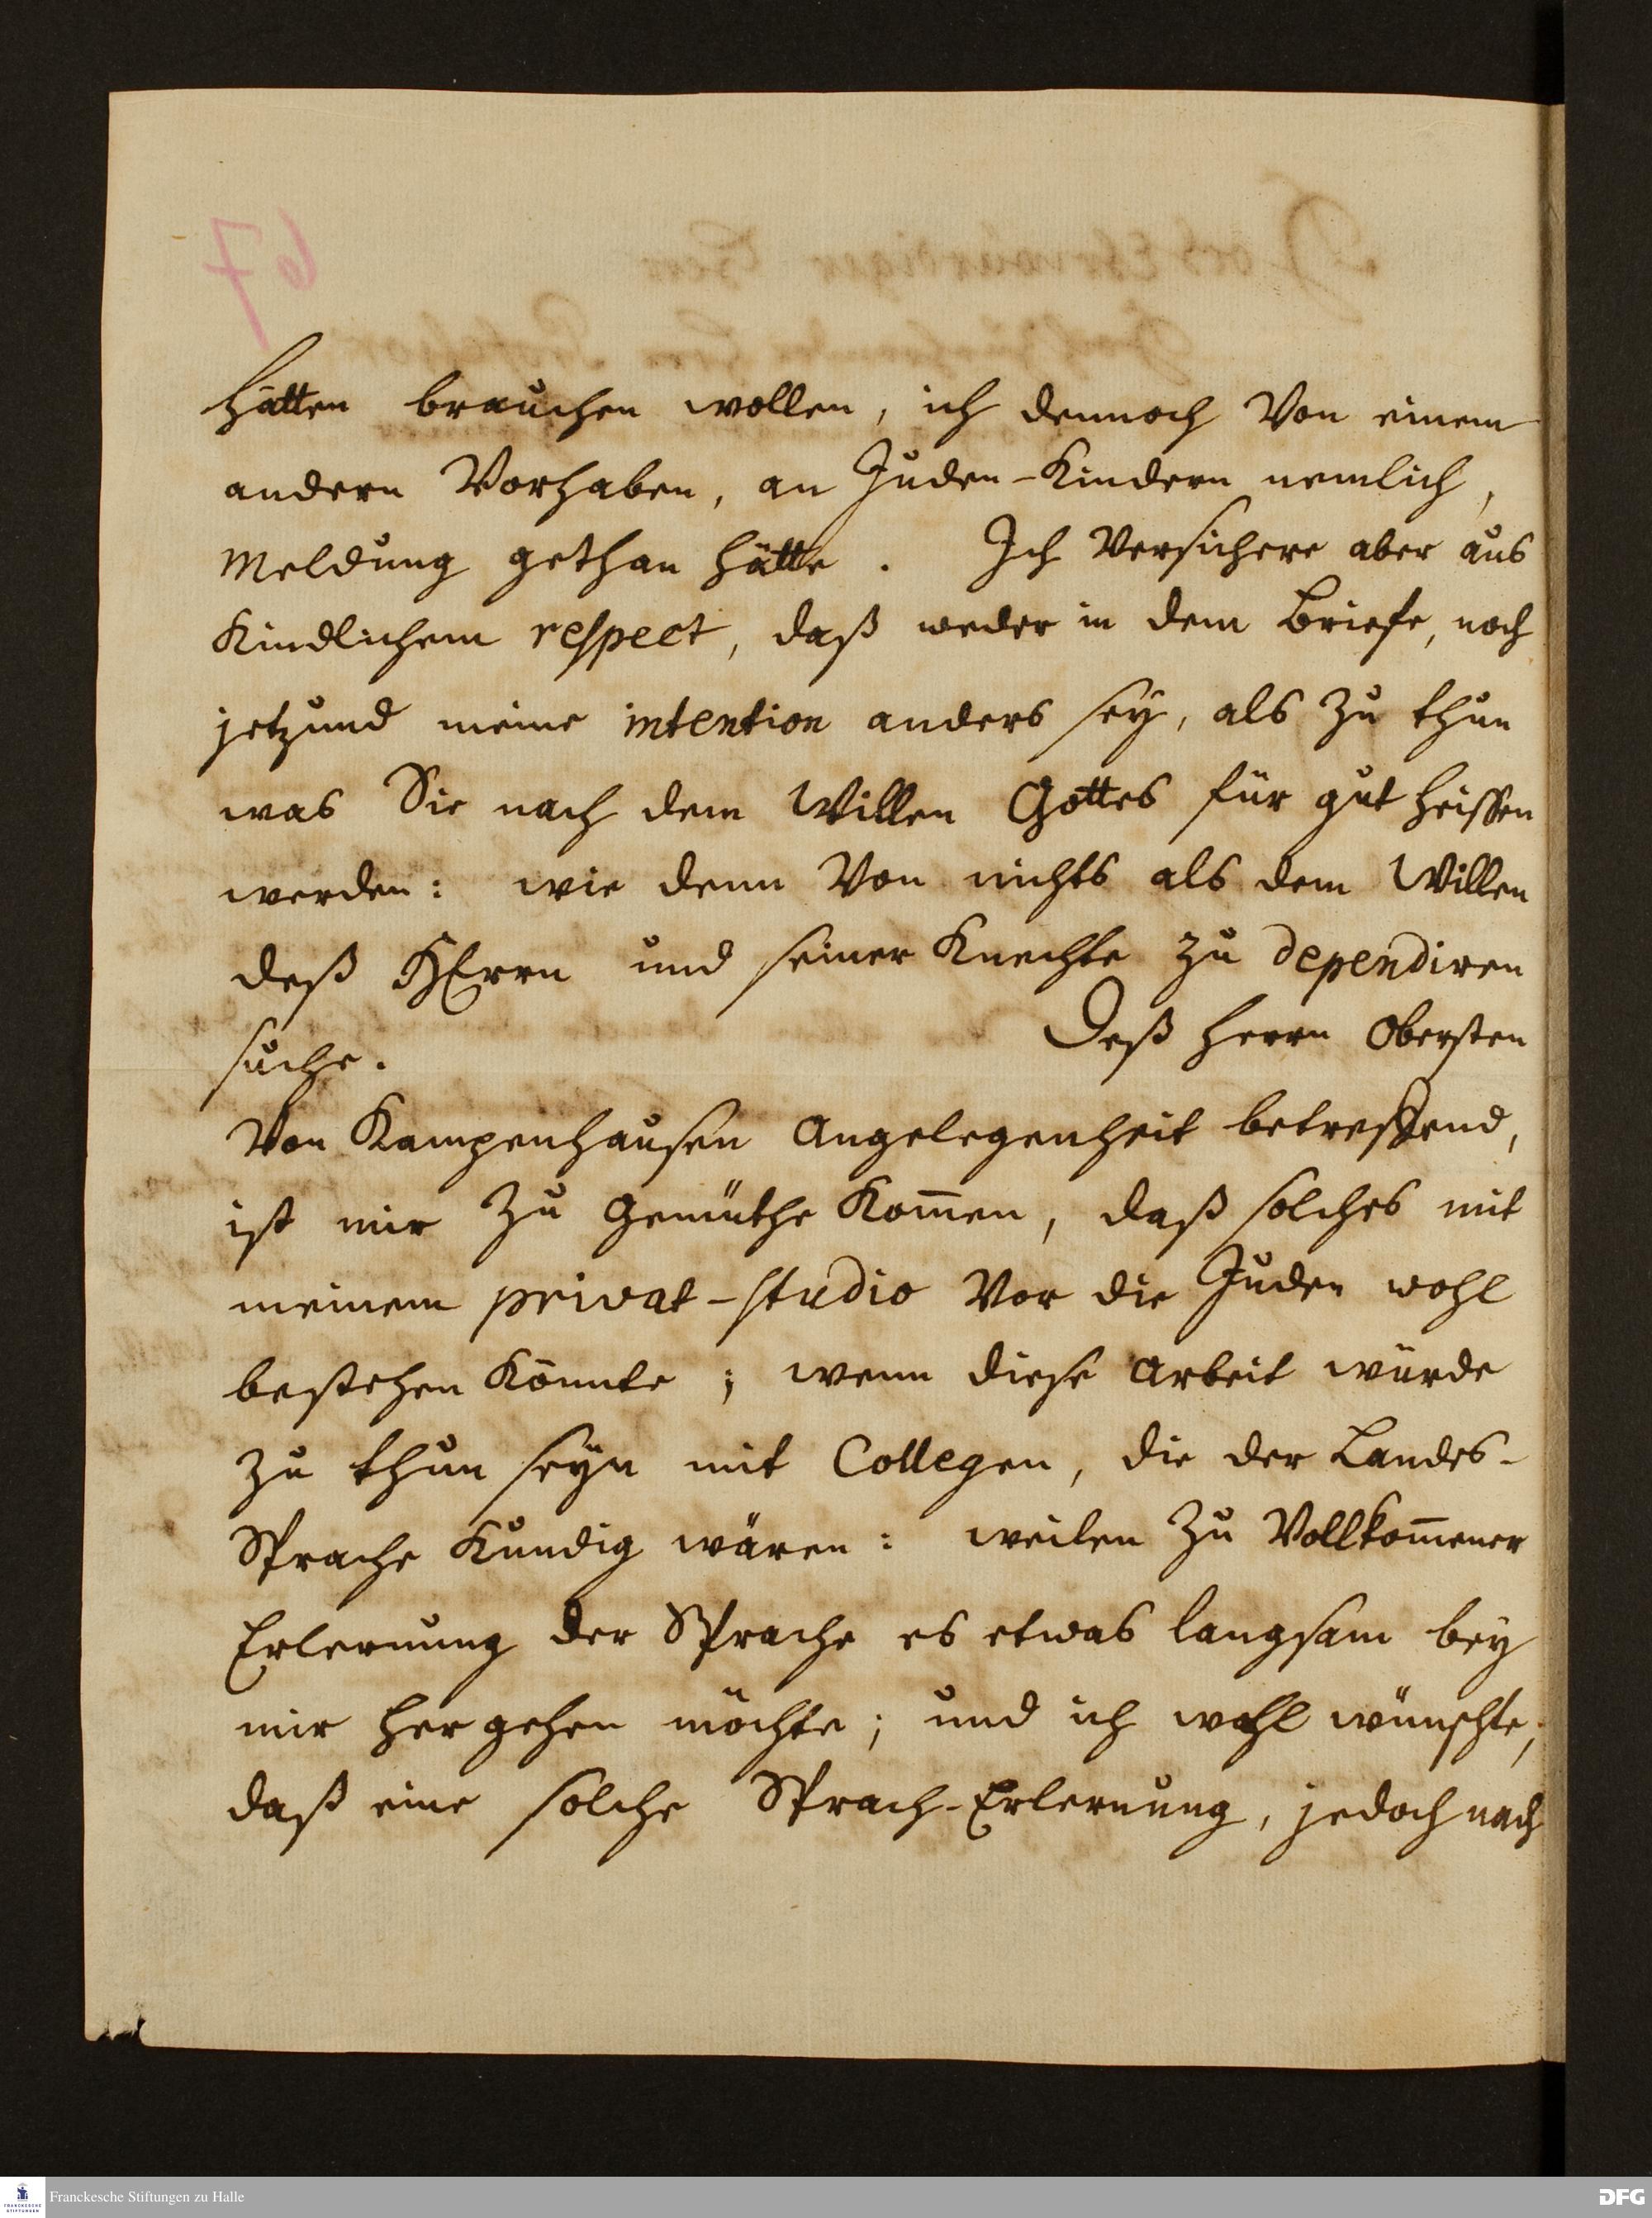 hätten brauchen wollen, ich dennoch Von einem
andern Vorhaben, an Juden-Kindern nemlich,
Meldung gethan hätte. Ich Versichere aber aus
Kindlichem respect, daß weder in dem Briefe, noch
jetzund meine intention anders seÿ, als Zu thun
was Sie nach dem Willen Gottes für gut heissen
werden: wie denn Von nichts als dem Willen
deß HErrn und seiner Knechte zu dependiren
suche. Deß Herrn Obersten
Von Kampenhausen Angelegenheit betreffend,
ist mir Zu Gemüthe Kom̄en, daß solches mit
meinem privat-studio Vor die Juden wohl
bestehen Könnte; wenn diese Arbeit würde
zu thun seÿn mit Collegen, die der Landes-
Sprache Kundig wären: weilen Zu Vollkom̄ener
Erlernung der Sprache es etwas langsam beÿ
mir her gehen möchte; und ich wohl wünschte,
daß eine solche Sprach-Erlernung, jedoch nach
Franckesche Stiftungen zu Halle
DFG